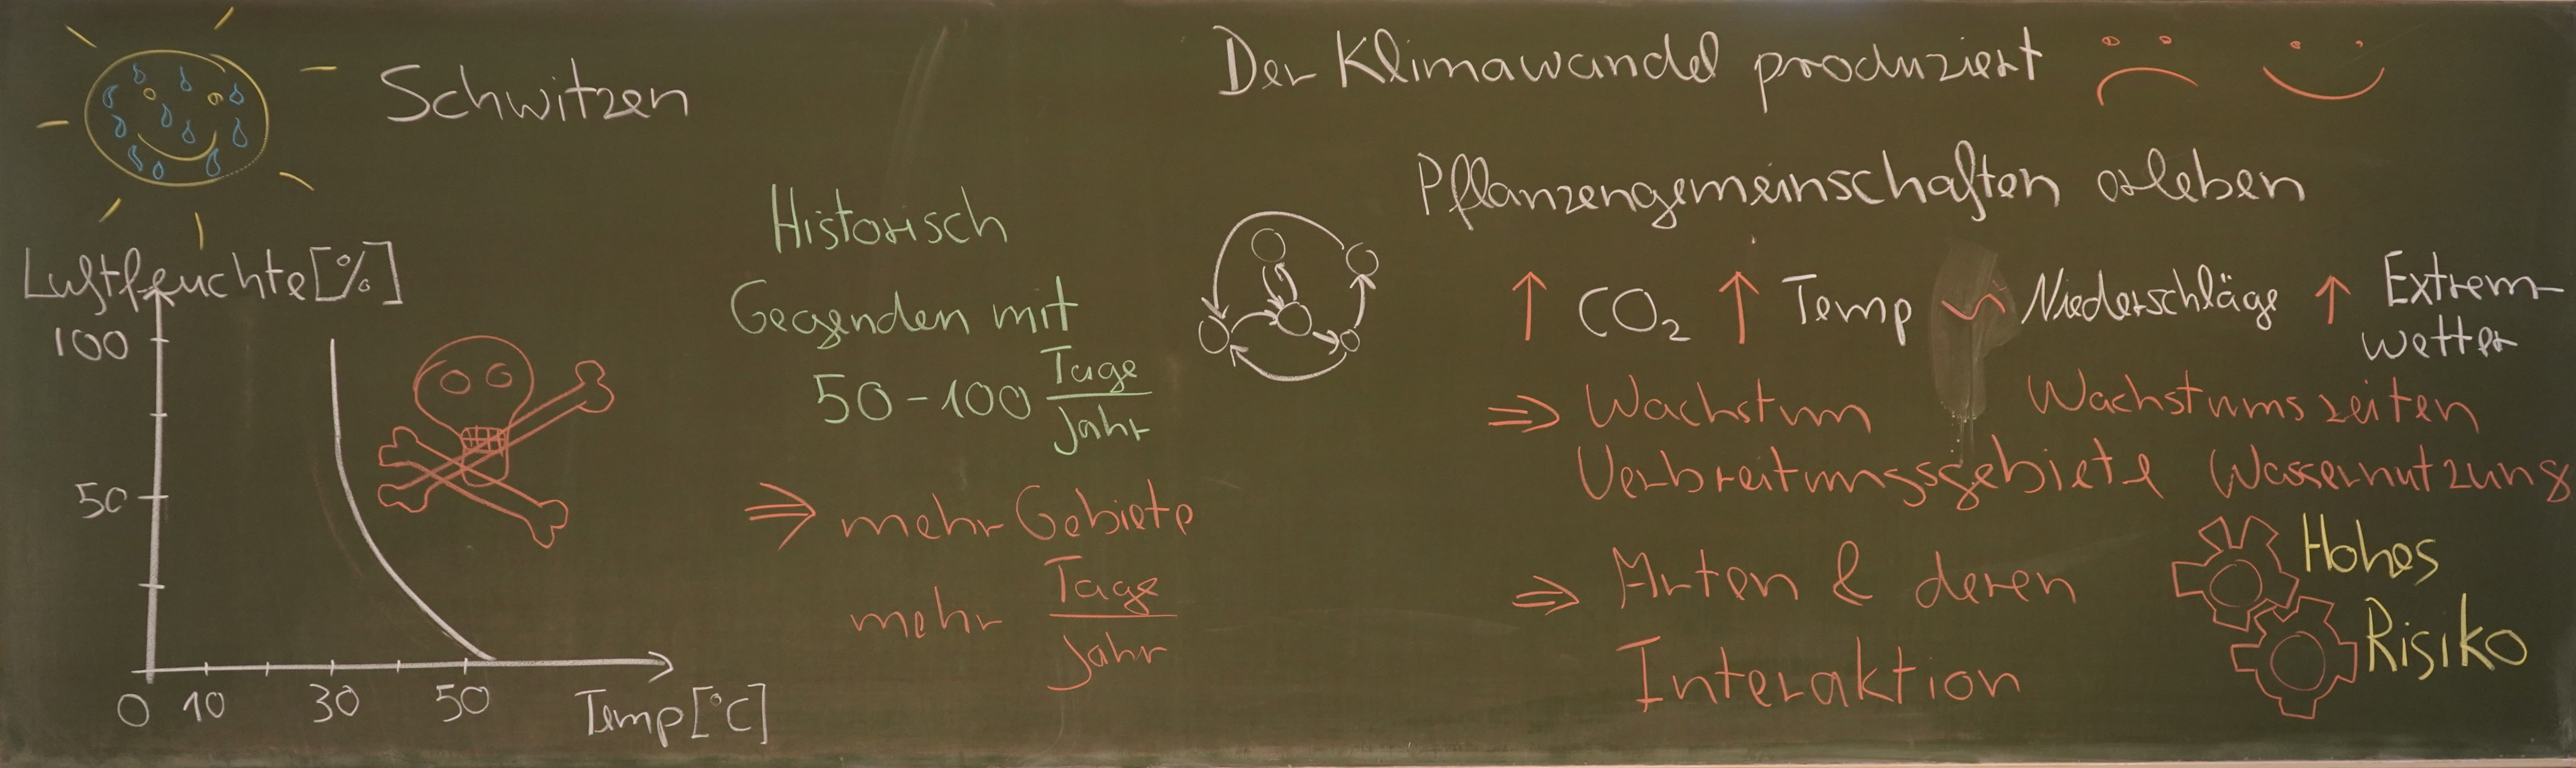 Schwitzen
Luftfeuchte [%]
100
50
0 10 30 50 Temp [°C]
Historisch
Gegenden mit
50-100 Tage
Jahr
⇒ mehr Gebiete
mehr Tage
Jahr
Der Klimawandel produziert
Pflanzengemeinschaften erleben
↑ CO₂ ↑ Temp ~ Niederschläge ↑ Extrem-
wetter
⇒ Wachstum Wachstumszeiten
Verbreitungsgebiete Wassernutzung
⇒ Arten & deren
Interaktion
Hohes
Risiko